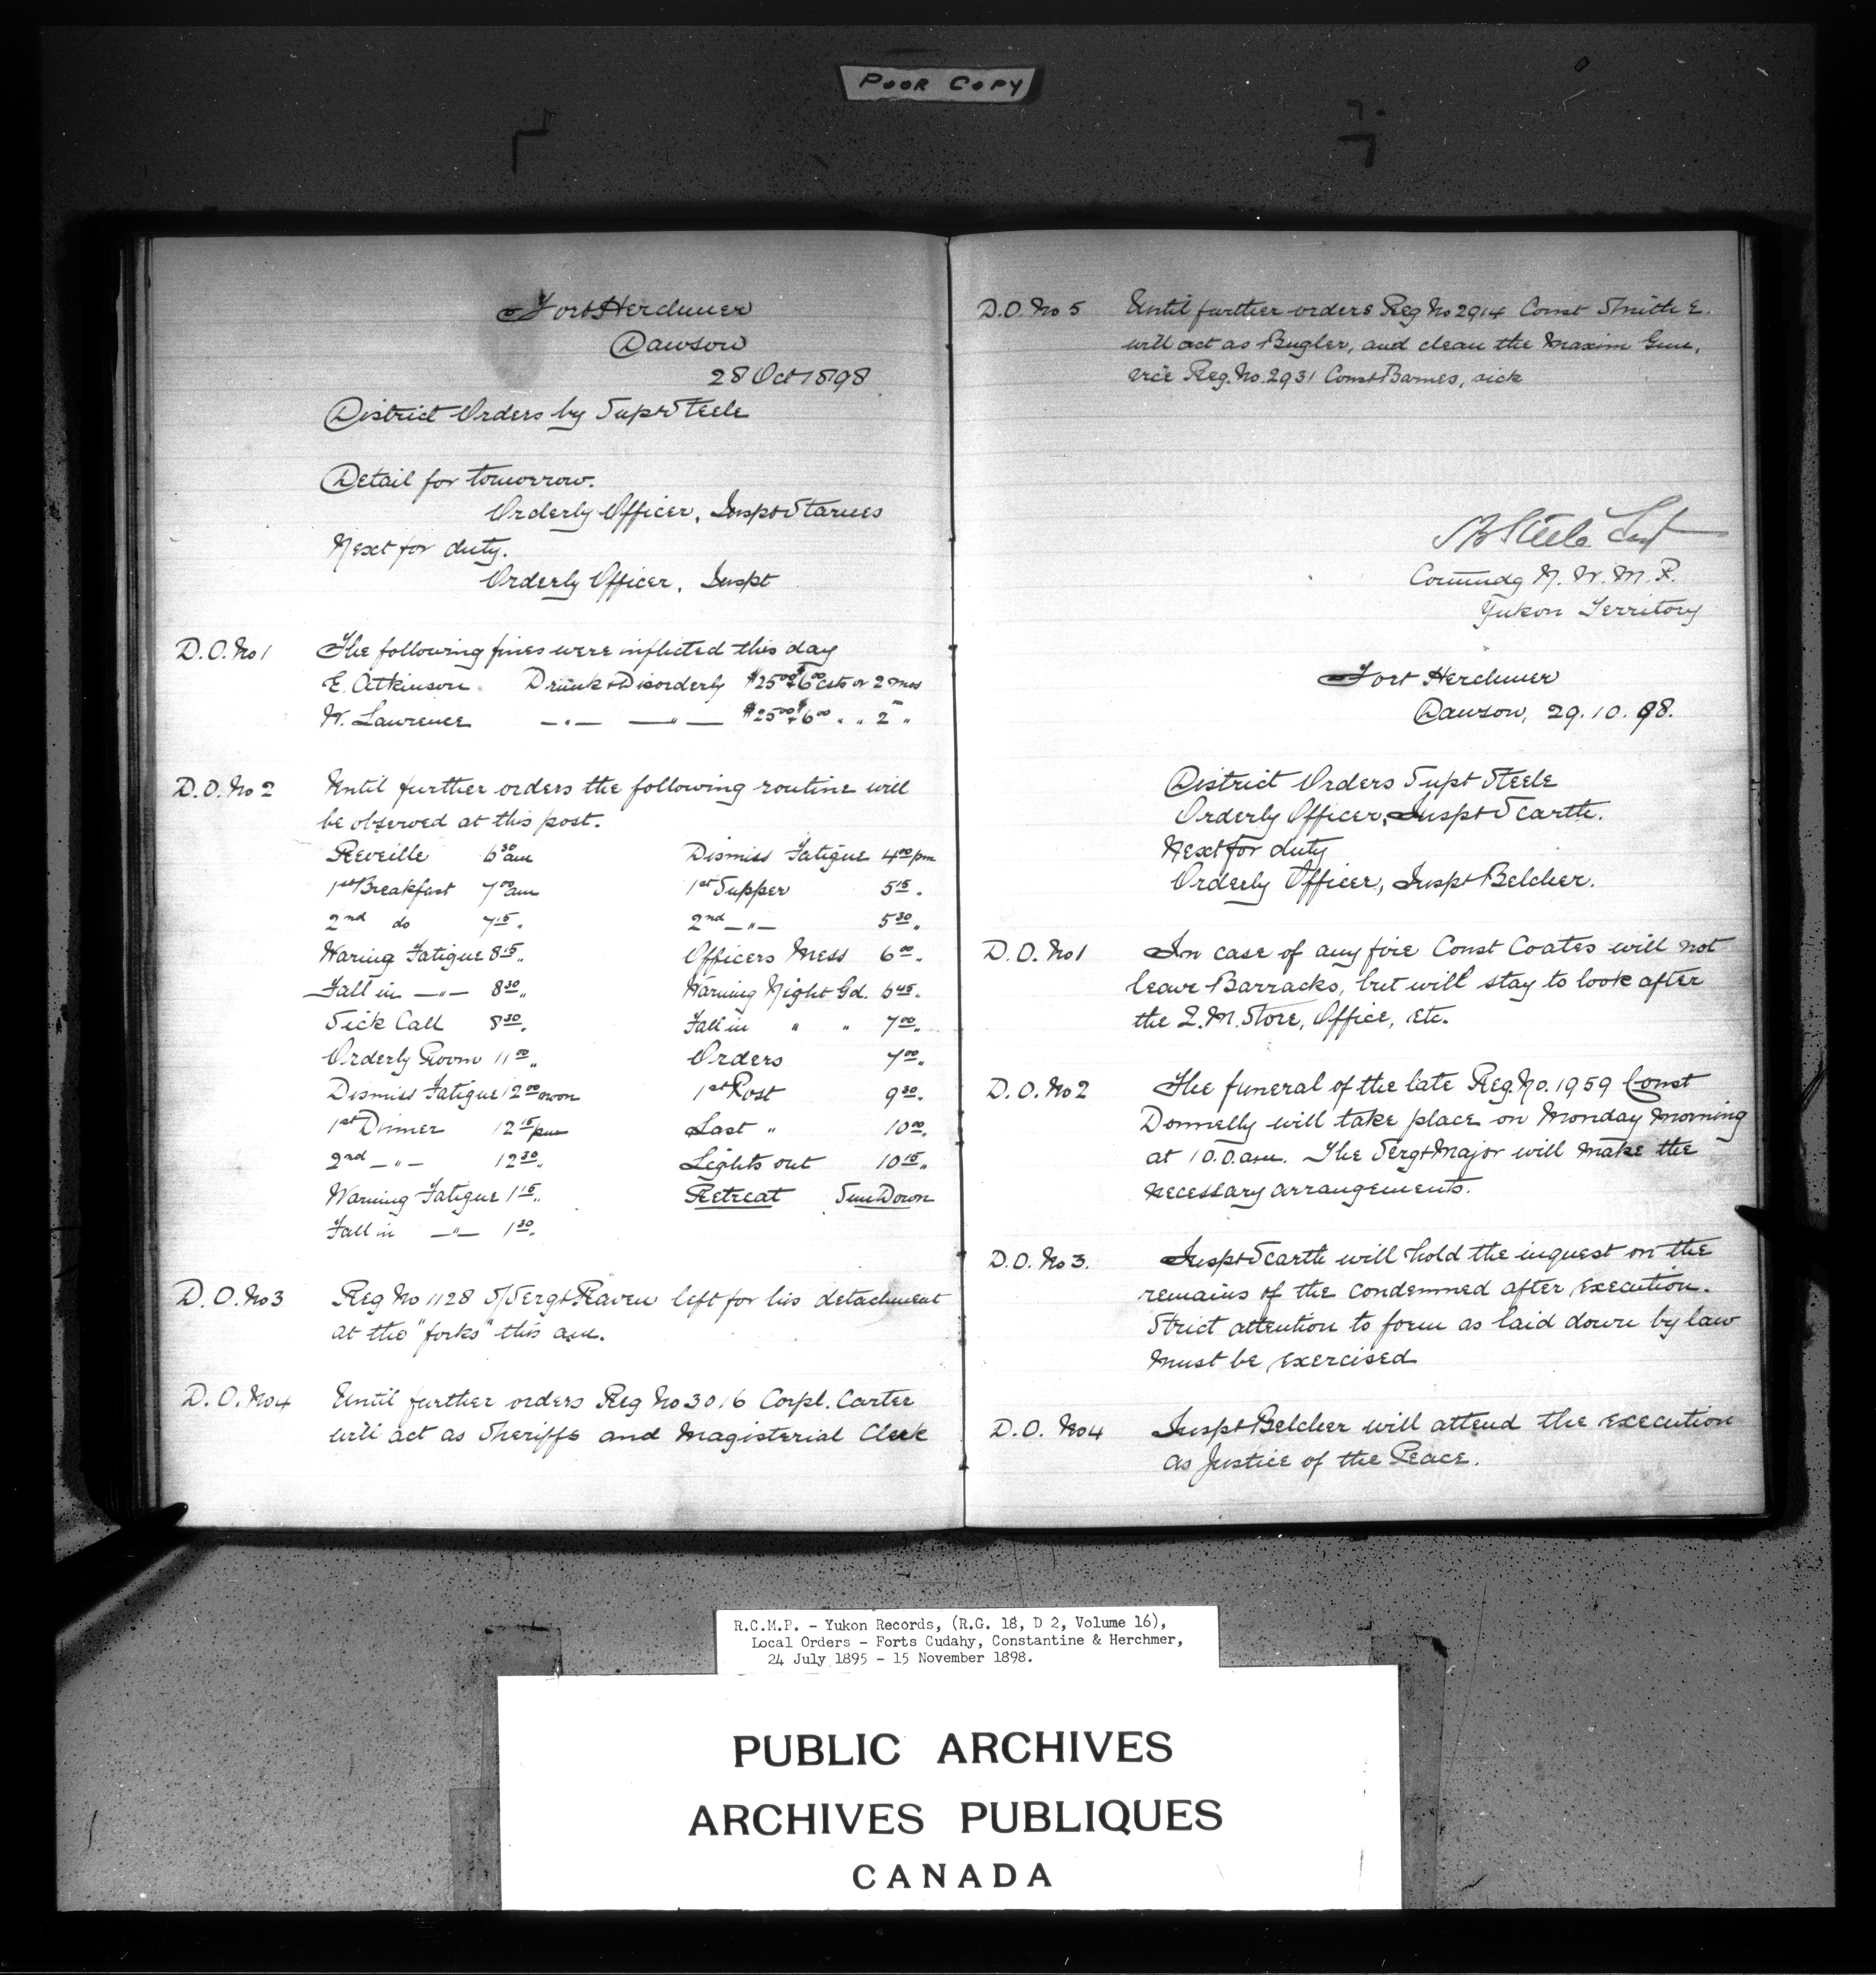 POOR COPY
Fort Herchmer
Dawson
28 Oct 1898
District Orders by Supt Steele
Detail for tomorrow.
Orderly Officer, Inspt Starnes
Next for duty.
Orderly Officer, Inspt
D.O. No 1 The following fines were inflicted this day
E. Atkinson Drunk & Disorderly $25.00 & $6.00 csts or 2 mos
W. Lawrence —"— —"— $25.00 & $6.00 " " 2 "
D.O. No 2 Until further orders the following routine will
be observed at this post.
Reveille 6 30 am Dismiss Fatigue 4 00 pm
1st Breakfast 7 00 am 1st Supper 5 15 "
2nd do 7 15 " 2nd —"— 5 30 "
Waring Fatigue 8 15 " Officers Mess 6 00 "
Fall in —"— 8 30 " Warning Night Gd. 6 45 "
Sick Call 8 30 " Fall in " " 7 00 "
Orderly Room 11 00 " Orders 7 00 "
Dismiss Fatigue 12 00 noon 1st Post 9 30 "
1st Dinner 12 15 pm Last " 10 00 "
2nd —"— 12 30 " Lights out 10 15 "
Warning Fatigue 1 15 " Retreat Sun Down
Fall in —"— 1 30 "
D.O. No 3 Reg No 1128 S/Sergt Raven left for his detachment
at the "forks" this am.
D.O. No 4 Until further orders Reg No 3016 Corpl. Carter
will act as Sheriffs and Magisterial Clerk
D.O. No 5 Until further orders Reg No 2914 Const Smith E.
will act as Bugler, and clean the Maxim Gun,
vice Reg. No. 2931 Const Barnes, sick
SB Steele Supt
Commdg N. W. M. P.
Yukon Territory
Fort Herchmer
Dawson, 29. 10. 98.
District Orders Supt Steele
Orderly Officer, Inspt Scarth.
Next for duty
Orderly Officer, Inspt Belcher.
D.O. No 1 In case of any fire Const Coates will not
leave Barracks, but will stay to look after
the Q.M. Store, Office, Etc.
D.O. No 2 The funeral of the late Reg. No. 1959 Const
Donnelly will take place on Monday Morning
at 10.0.am. The Sergt Major will make the
necessary arrangements.
D.O. No 3. Inspt Scarth will hold the inquest on the
remains of the condemned after execution.
Strict attention to form as laid down by law
must be exercised
D.O. No 4 Inspt Belcher will attend the execution
as Justice of the Peace.
R.C.M.P. - Yukon Records, (R.G. 18, D 2, Volume 16),
Local Orders - Forts Cudahy, Constantine & Herchmer,
24 July 1895 - 15 November 1898.
PUBLIC ARCHIVES
ARCHIVES PUBLIQUES
CANADA